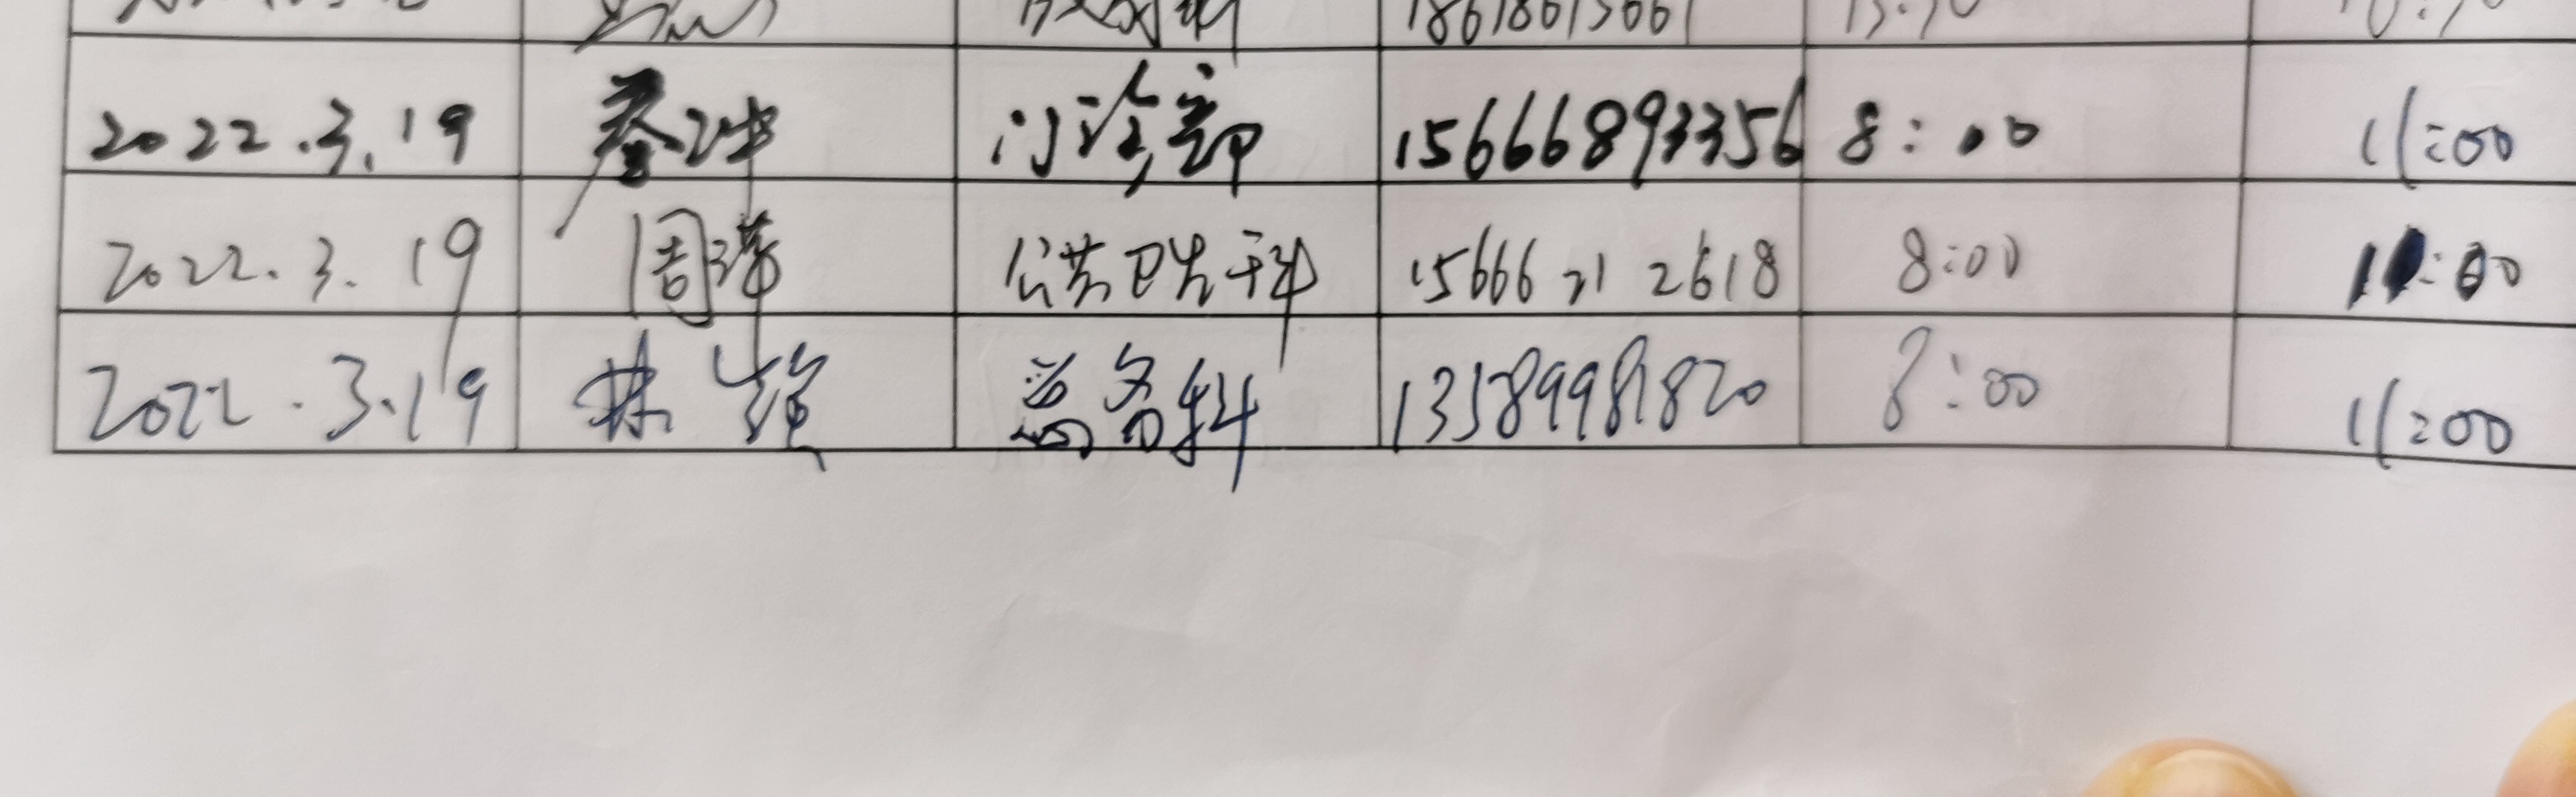 18618615661
2022.3.19 秦冲 门诊部 15666893356 8:00 11:00
2022.3.19 周瑾 公共卫生科 15666212618 8:00 11:00
2022.3.19 林 总务科 13589981820 8:00 11:00